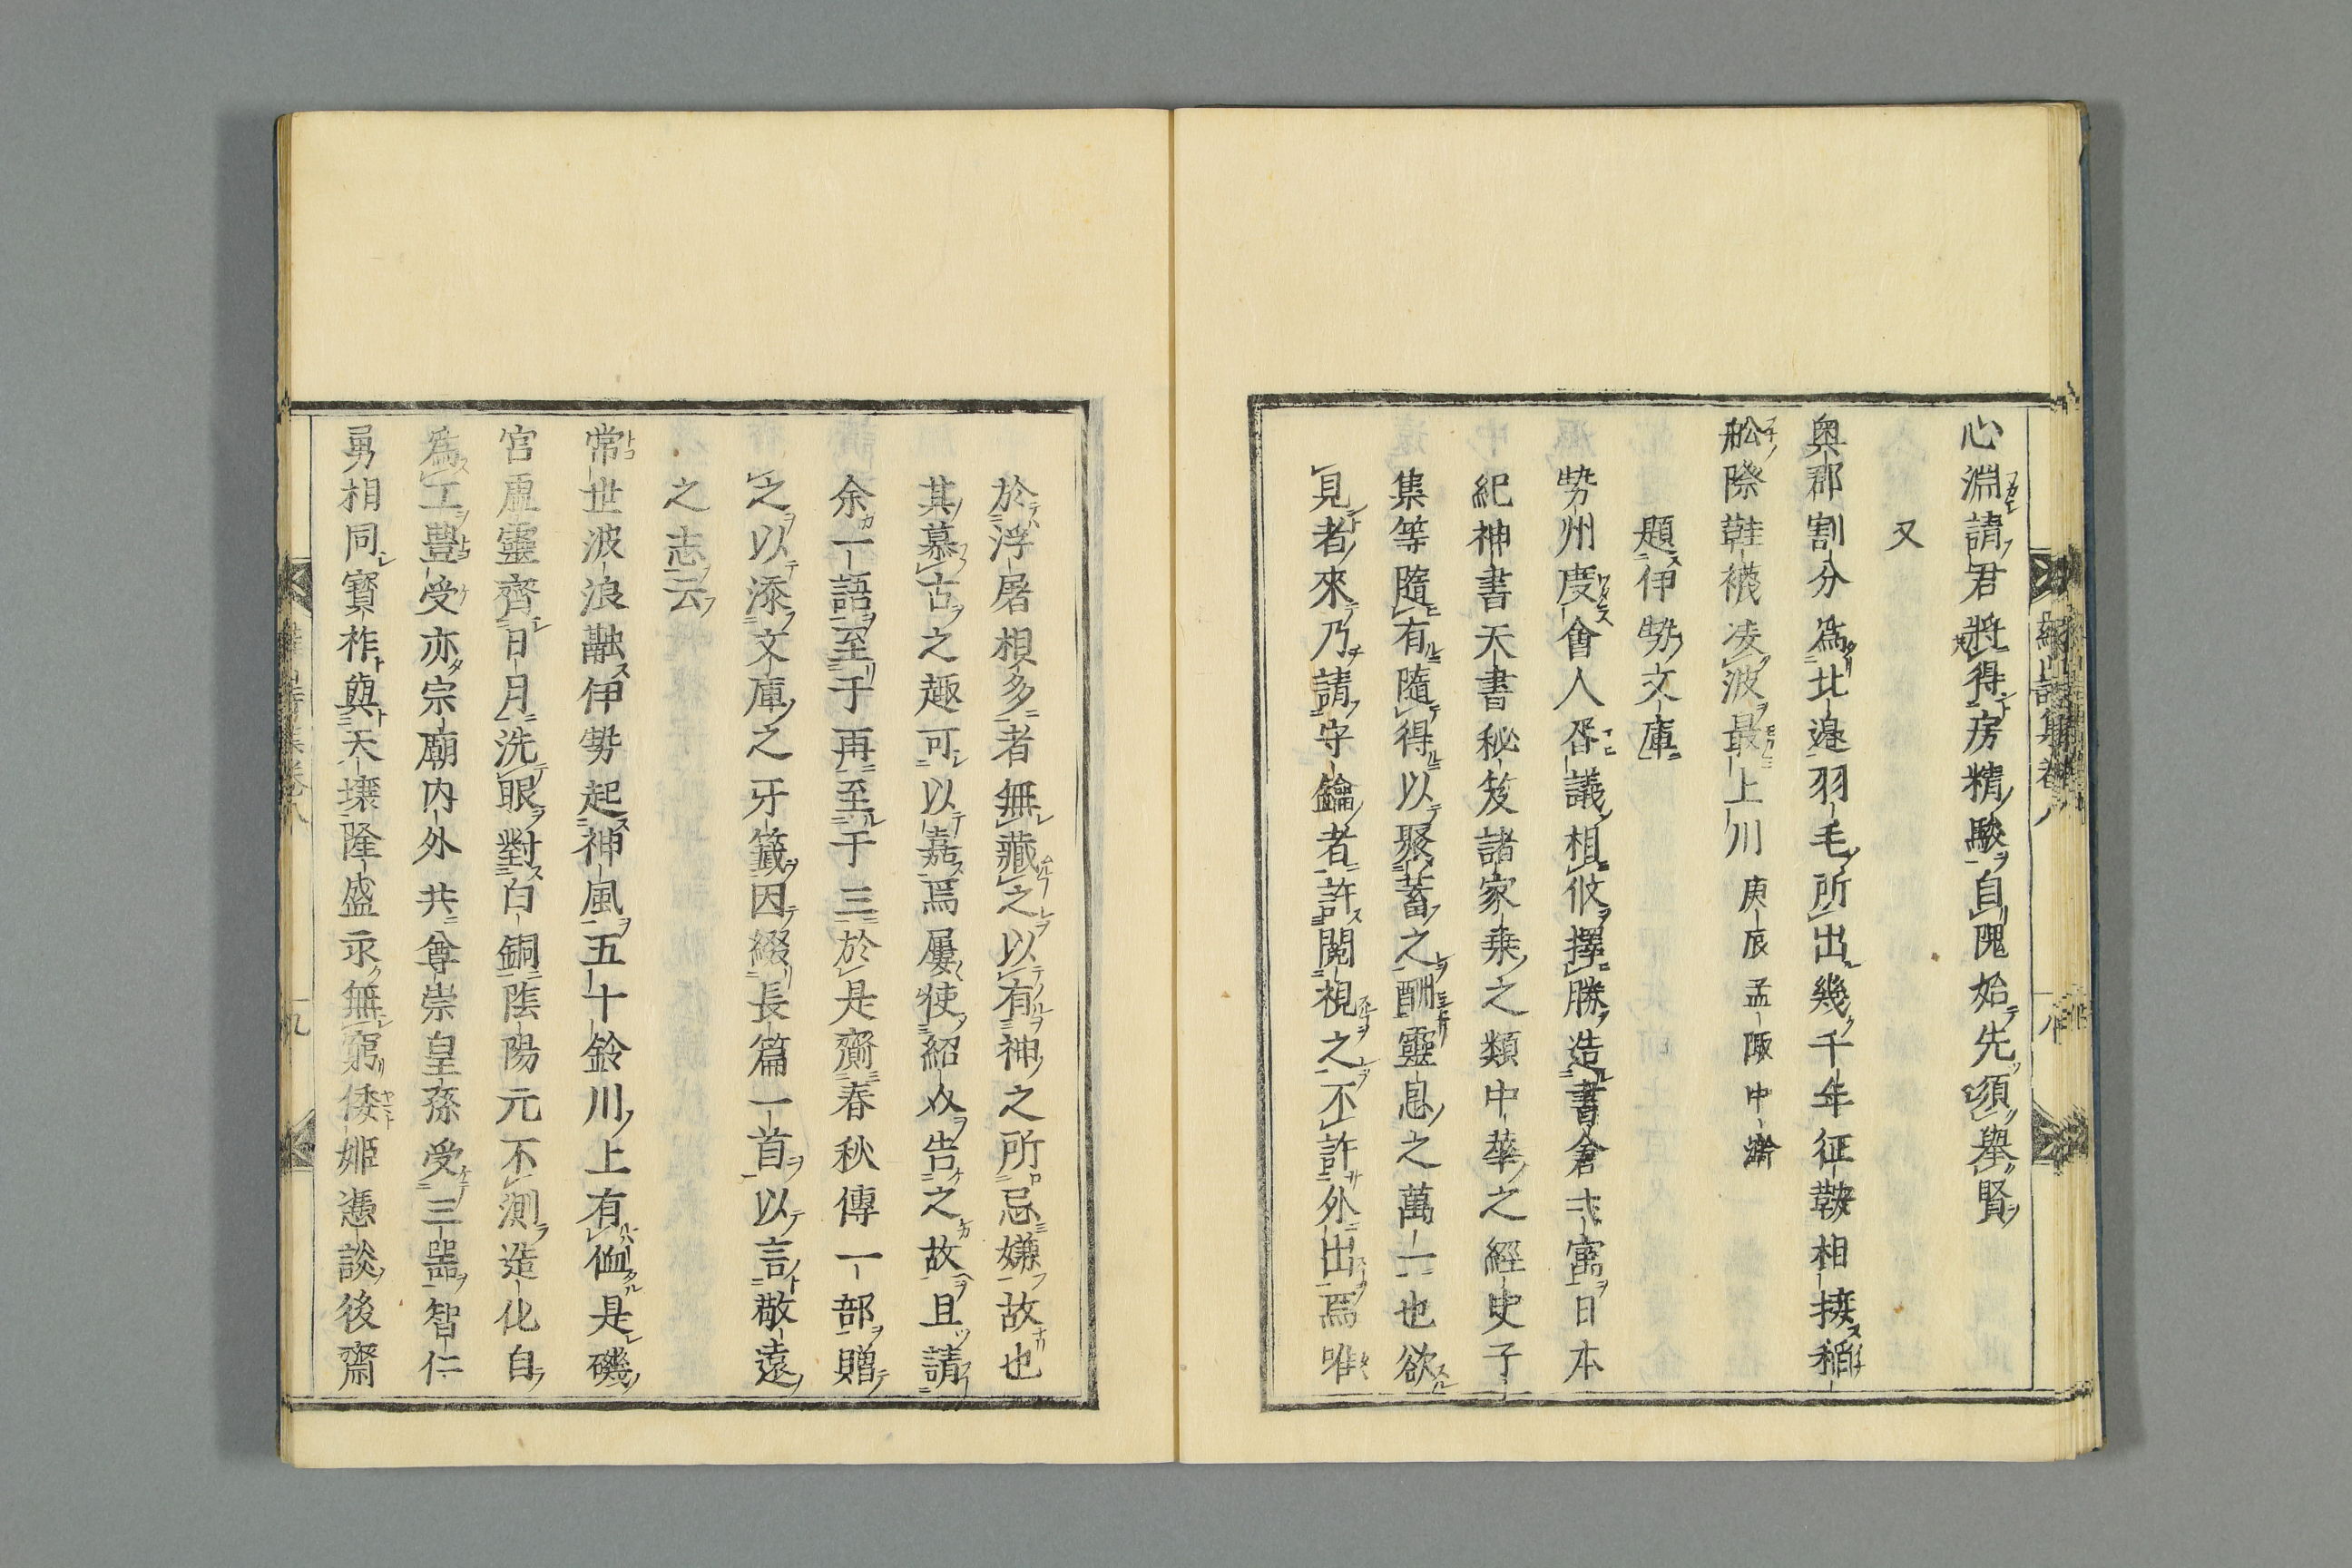 心淵請君將得房精駿自隗始先須舉賢
又
奥郡割分爲北邉羽毛所出幾千年征鞍相接稻
舩際鞋襪凌波最上川 庚辰孟陬中澣
題伊勢文庫
勢州度會人胥議相攸擇勝造書倉弍寓日本
紀神書天書秘笈諸家乗之類中華之經史子
集等隨有隨得以聚蓄之酬靈恩之萬一也欲
見者來乃請守鑰者許閲視之不許外出焉唯
於浮屠根多者無藏之以有神之所忌嫌故也
其慕古之趣可以嘉焉屢使紹价告之故且請
余一語至于再至于三於是齎春秋傳一部贈
之以添文庫之牙籤因綴長篇一首以言敬遠
之志云
常世波浪融伊勢起神風五十鈴川上有侐是磯
宮虛靈齊日月洗眼對白銅隂陽元不測造化自
爲工豊受亦宗廟内外共尊崇皇孫受三器智仁
勇相同寳祚與天壤隆盛永無窮倭姫憑談後齋